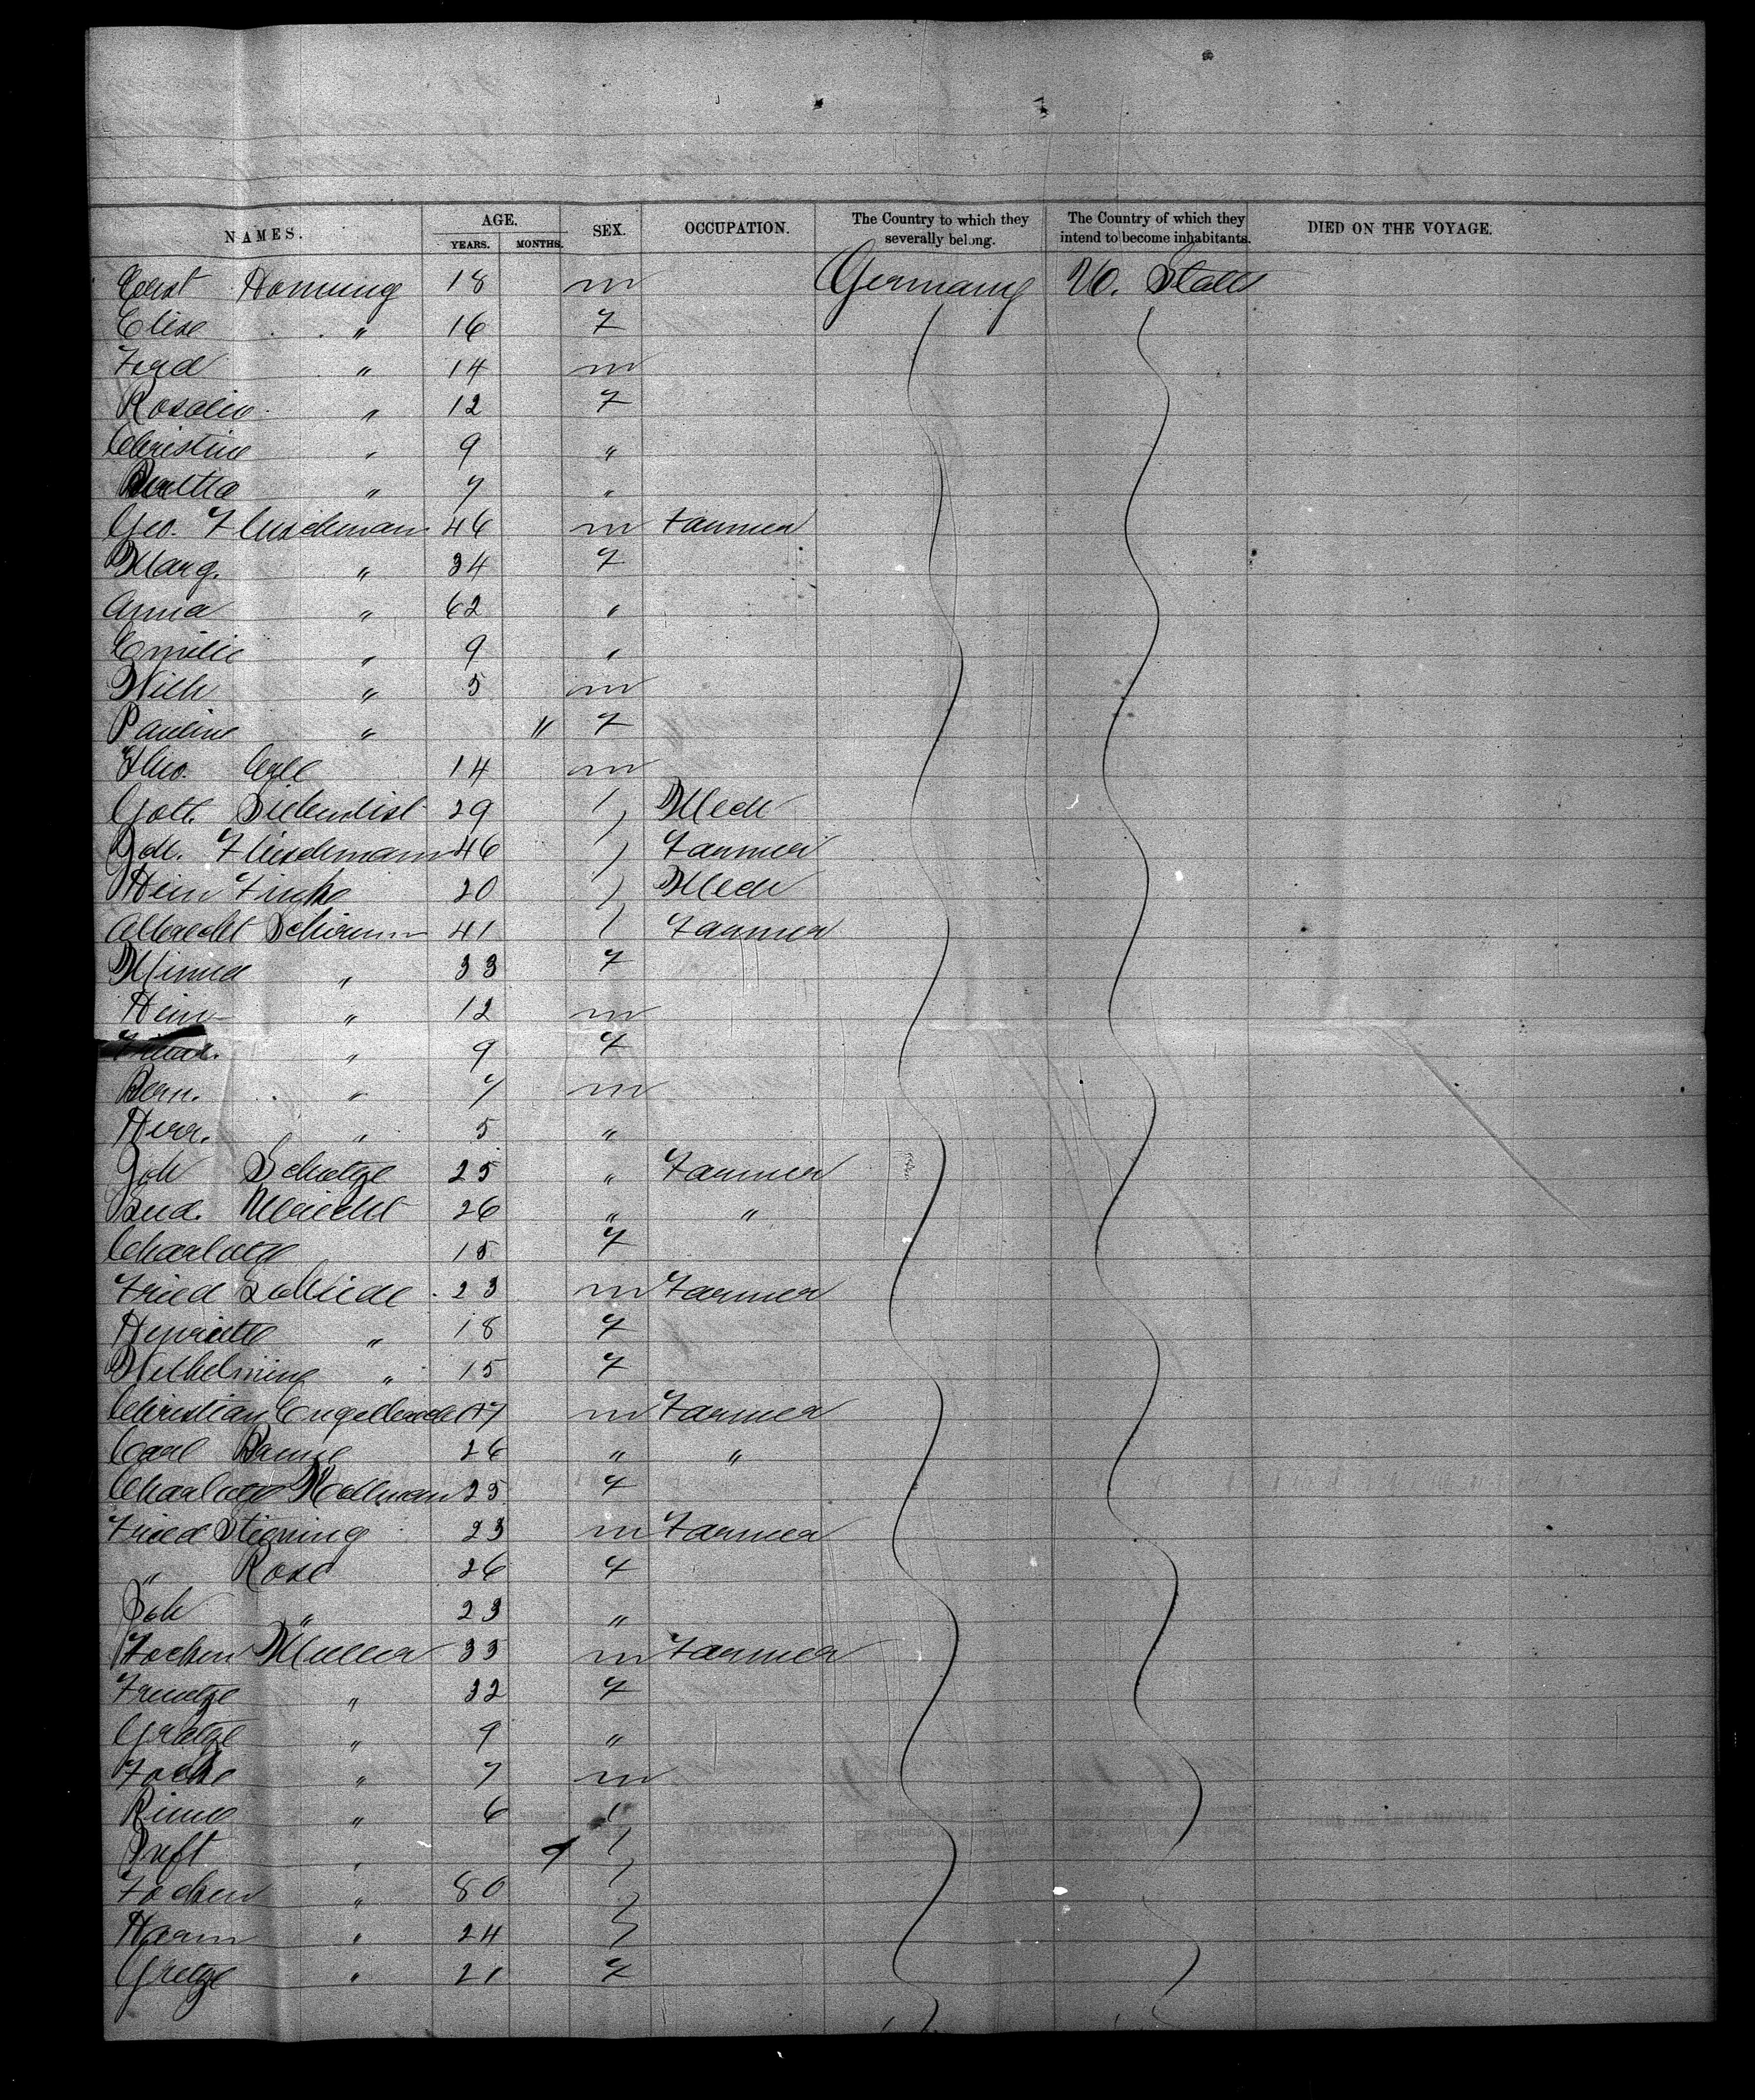 NAMES. AGE. YEARS. MONTHS. SEX. OCCUPATION. The Country to which they severally belong. The Country of which they intend to become inhabitants. DIED ON THE VOYAGE.
Ernst Hornung 18 m Germany U. States
Elise " 16 f
Ferd " 14 m
Rosalie " 12 f
Christine " 9 "
Bertha " 7 "
Geo. Fleischman 46 m Farmer
Marg. " 34 f
Anna " 62 "
Emilie " 9 "
Wilh " 5 m
Pauline " 11 f
Theo. 14 m
Gott. Siebenlist 29 " Mech
Joh. Fleischmann 46 " Farmer
Hein Finke 20 " Mech
Albrecht Schirmm 41 " Farmer
Minna " 33 f
Hein " 12 m
" 9 f
Bern. " 7 m
Herr. " 5 "
Joh Schatze 25 " Farmer
Lud. Albrecht 26 " "
Charlotte 15 f
Fried 23 m Farmer
Henriette " 18 f
Wilhelmine " 15 f
Christian 17 m Farmer
Carl 26 " "
Charlotte Hollman 25 f
Fried 23 m Farmer
" Rose 26 f
Joh " 23 "
Focken Muller 33 m Farmer
Frautze " 32 f
Gratze " 9 "
Focke " 7 m
" 6 "
" 9 "
Focken " 80 "
Harm " 24 "
Gretze " 21 f